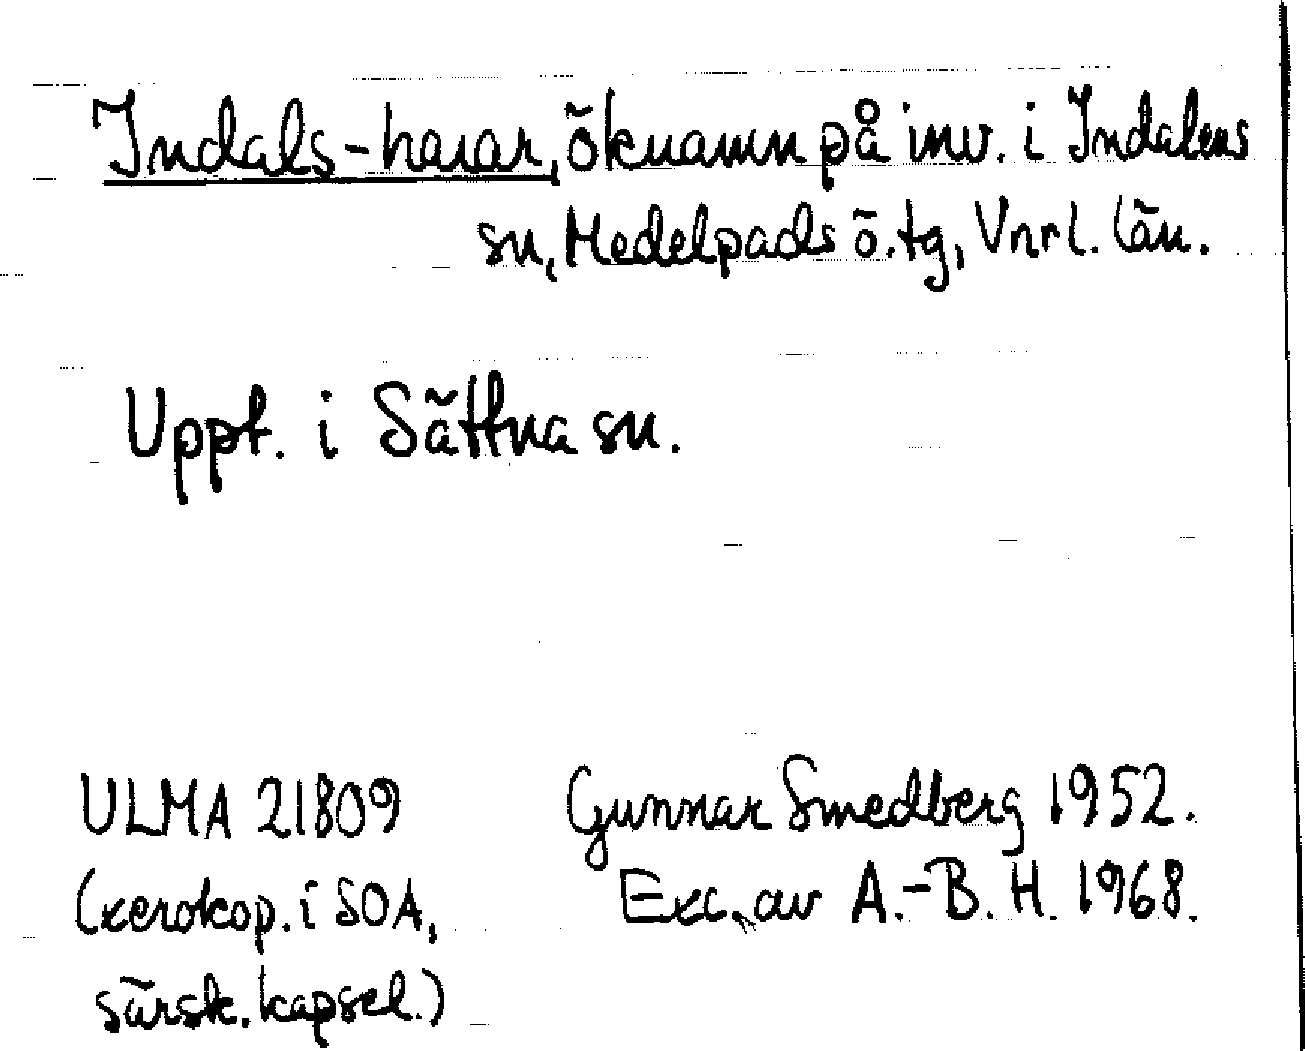 Indals-harar, öknamn på inv. i Indalens
sn, Medelpads ö. tg, Vnrl. län.
Uppt. i Sättna sn.
ULMA 21809
Gunnar Smedberg 1952.
(xerokop. i SOA,
Exc. av A.-B. H. 1968.
särsk. kapsel.)